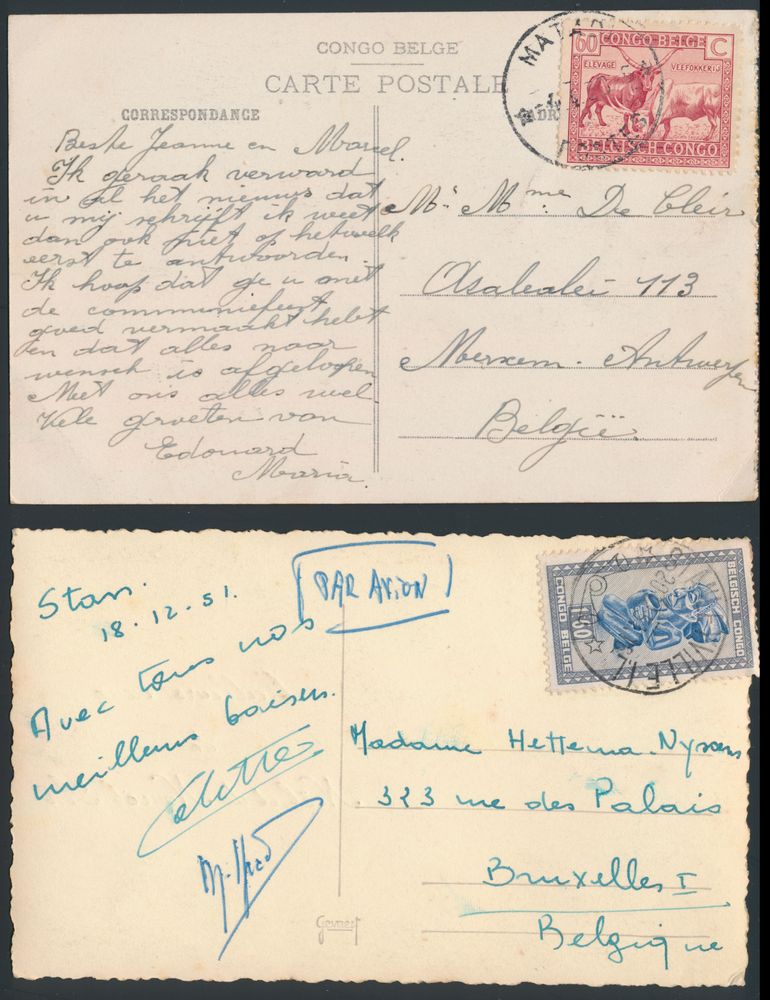 CONGO BELGE
CARTE POSTALE
CORRESPONDANCE
MATADI
60 CONGO BELGE C
ELEVAGE VEEFOKKERIJ
BELGISCH CONGO
Beste Jeanne en Marcel.
Ik geraak verward
in al het nieuws dat
u mij schrijft ik weet
dan ook niet op het welk
eerst te antwoorden.
Ik hoop dat ge u met
de communiefeest
goed vermaakt hebt
en dat alles naar
wensch is afgeloopen
Met ons alles wel
Vele groeten van
Edouard
Maria
Mr Mme De Cleir
Asalealei 113
Merxem. Antwerpen
België.
Stan.
18.12.51.
PAR AVION
BELGISCH CONGO
1.50
CONGO BELGE
VILLE
Avec tous nos
meilleurs baisers.
Madame Hettema. Nyssens
323 rue des Palais
Bruxelles I
Belgique
Gevaert